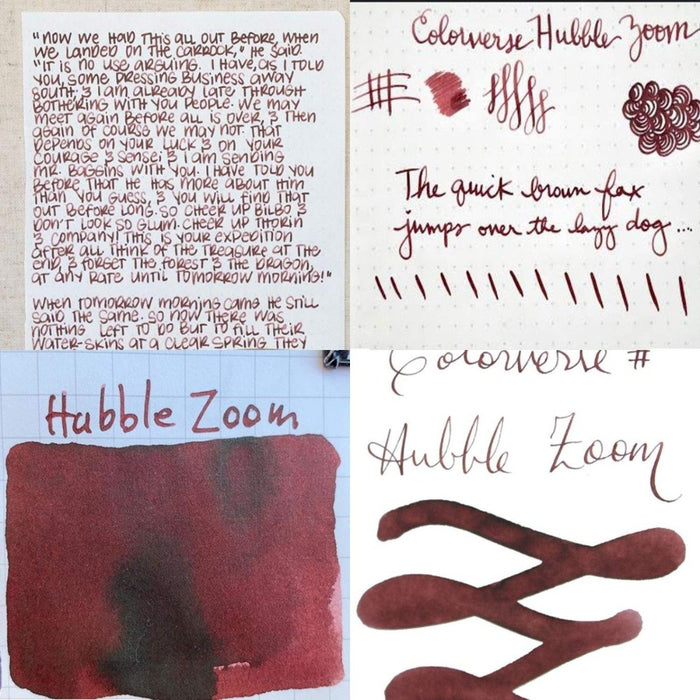 "NOW WE HAD THIS ALL OUT BEFORE, WHEN
WE LANDED ON THE CARROCK," HE SAID.
"IT IS NO USE ARGUING. I HAVE, AS I TOLD
YOU, SOME PRESSING BUSINESS AWAY
SOUTH; & I AM ALREADY LATE THROUGH
BOTHERING WITH YOU PEOPLE. WE MAY
MEET AGAIN BEFORE ALL IS OVER, & THEN
AGAIN OF COURSE WE MAY NOT. THAT
DEPENDS ON YOUR LUCK & ON YOUR
COURAGE & SENSE; & I AM SENDING
MR. BAGGINS WITH YOU. I HAVE TOLD YOU
BEFORE THAT HE HAS MORE ABOUT HIM
THAN YOU GUESS, & YOU WILL FIND THAT
OUT BEFORE LONG. SO CHEER UP BILBO &
DON'T LOOK SO GLUM. CHEER UP THORIN
& COMPANY! THIS IS YOUR EXPEDITION
AFTER ALL. THINK OF THE TREASURE AT THE
END, & FORGET THE FOREST & THE DRAGON,
AT ANY RATE UNTIL TOMORROW MORNING!"
WHEN TOMORROW MORNING CAME HE STILL
SAID THE SAME. SO NOW THERE WAS
NOTHING LEFT TO DO BUT TO FILL THEIR
WATER-SKINS AT A CLEAR SPRING THEY
Colorverse Hubble Zoom
The quick brown fox
jumps over the lazy dog....
Hubble Zoom
Colorverse #
Hubble Zoom